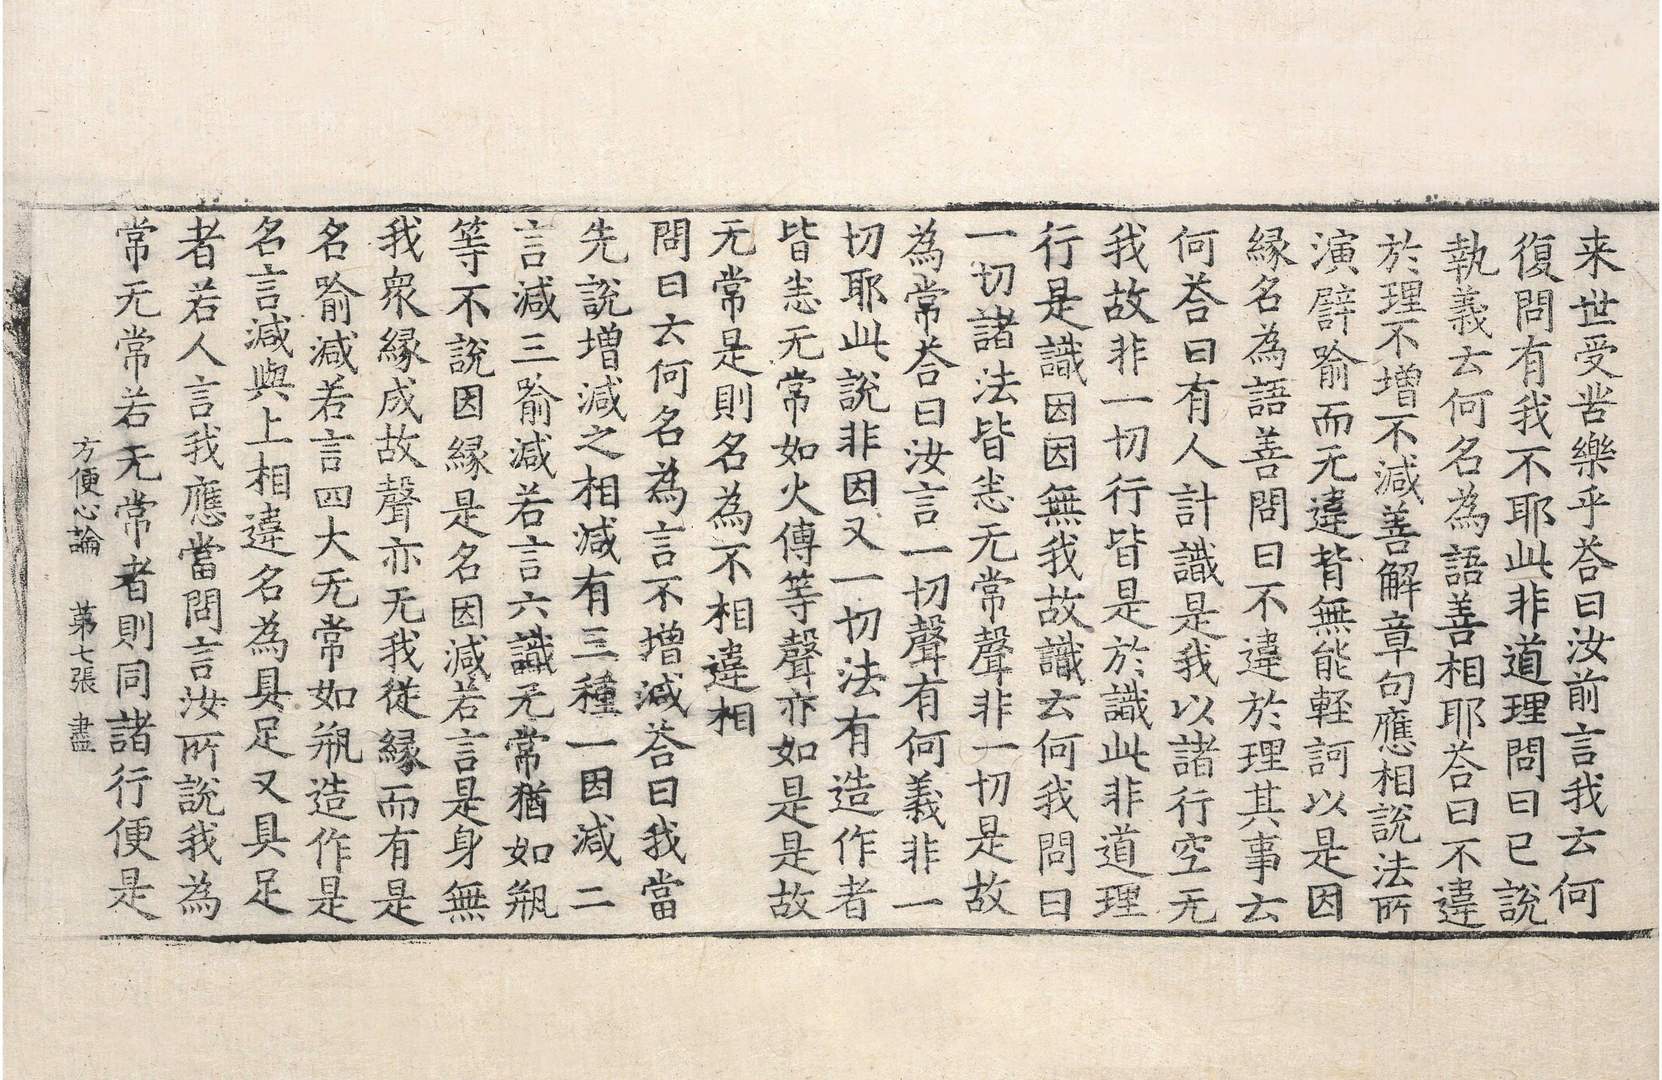 来世受苦樂乎荅曰汝前言我去何
復問有我不耶此非道理問曰已說
執義云何名為語善相耶荅曰不違
於理不增不減善解章句應相說法所
演譬喻而无違背無能輕訶以是因
縁名為語善問曰不違於理其事云
何荅曰有人計識是我以諸行空无
我故非一切行皆是於識此非道理
行是識因因無我故識云何我問曰
一切諸法皆悉无常聲非一切是故
為常荅曰汝言一切聲有何義非一
切耶此說非因又一切法有造作者
皆悉无常如火傳等聲亦如是是故
无常是則名為不相違相
問曰云何名為言不增減荅曰我當
先說增減之相減有三種一因減二
言減三喻減若言六識无常猶如瓶
等不說因縁是名因減若言是身無
我衆縁成故聲亦无我従縁而有是
名喻減若言四大无常如瓶造作是
名言減與上相違名為具足又具足
者若人言我應當問言汝所說我為
常无常若无常者則同諸行便是
方便心論　第七張　盡